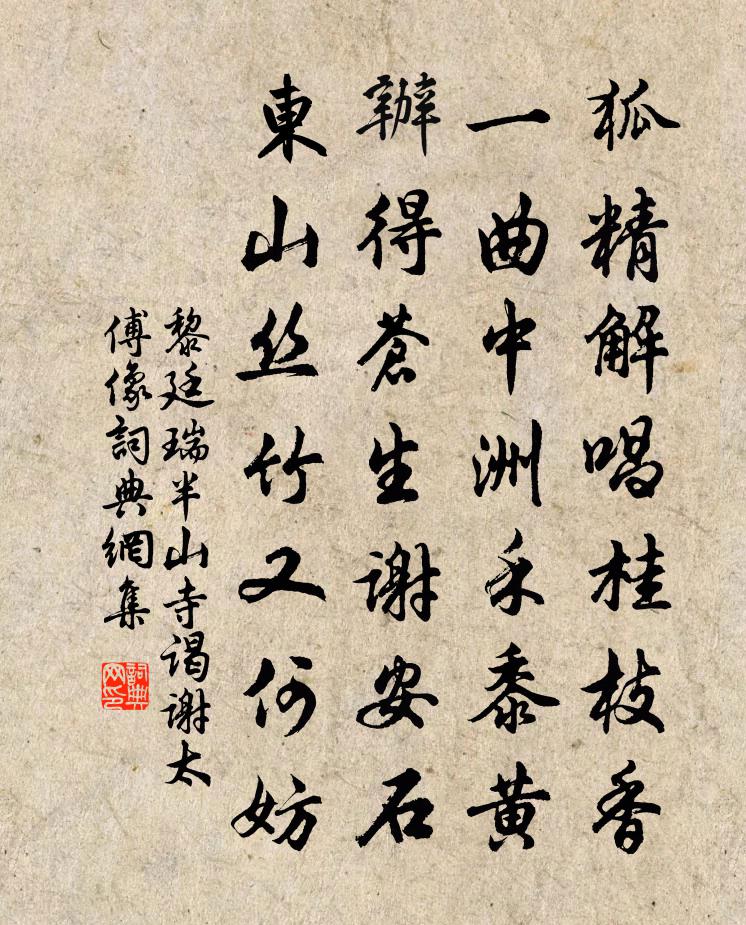 狐精解唱桂枝香
一曲中洲禾黍黃
辦得蒼生謝安石
東山丝竹又何妨
黎廷瑞半山寺謁謝太
傅像詞典網集
詞典网印